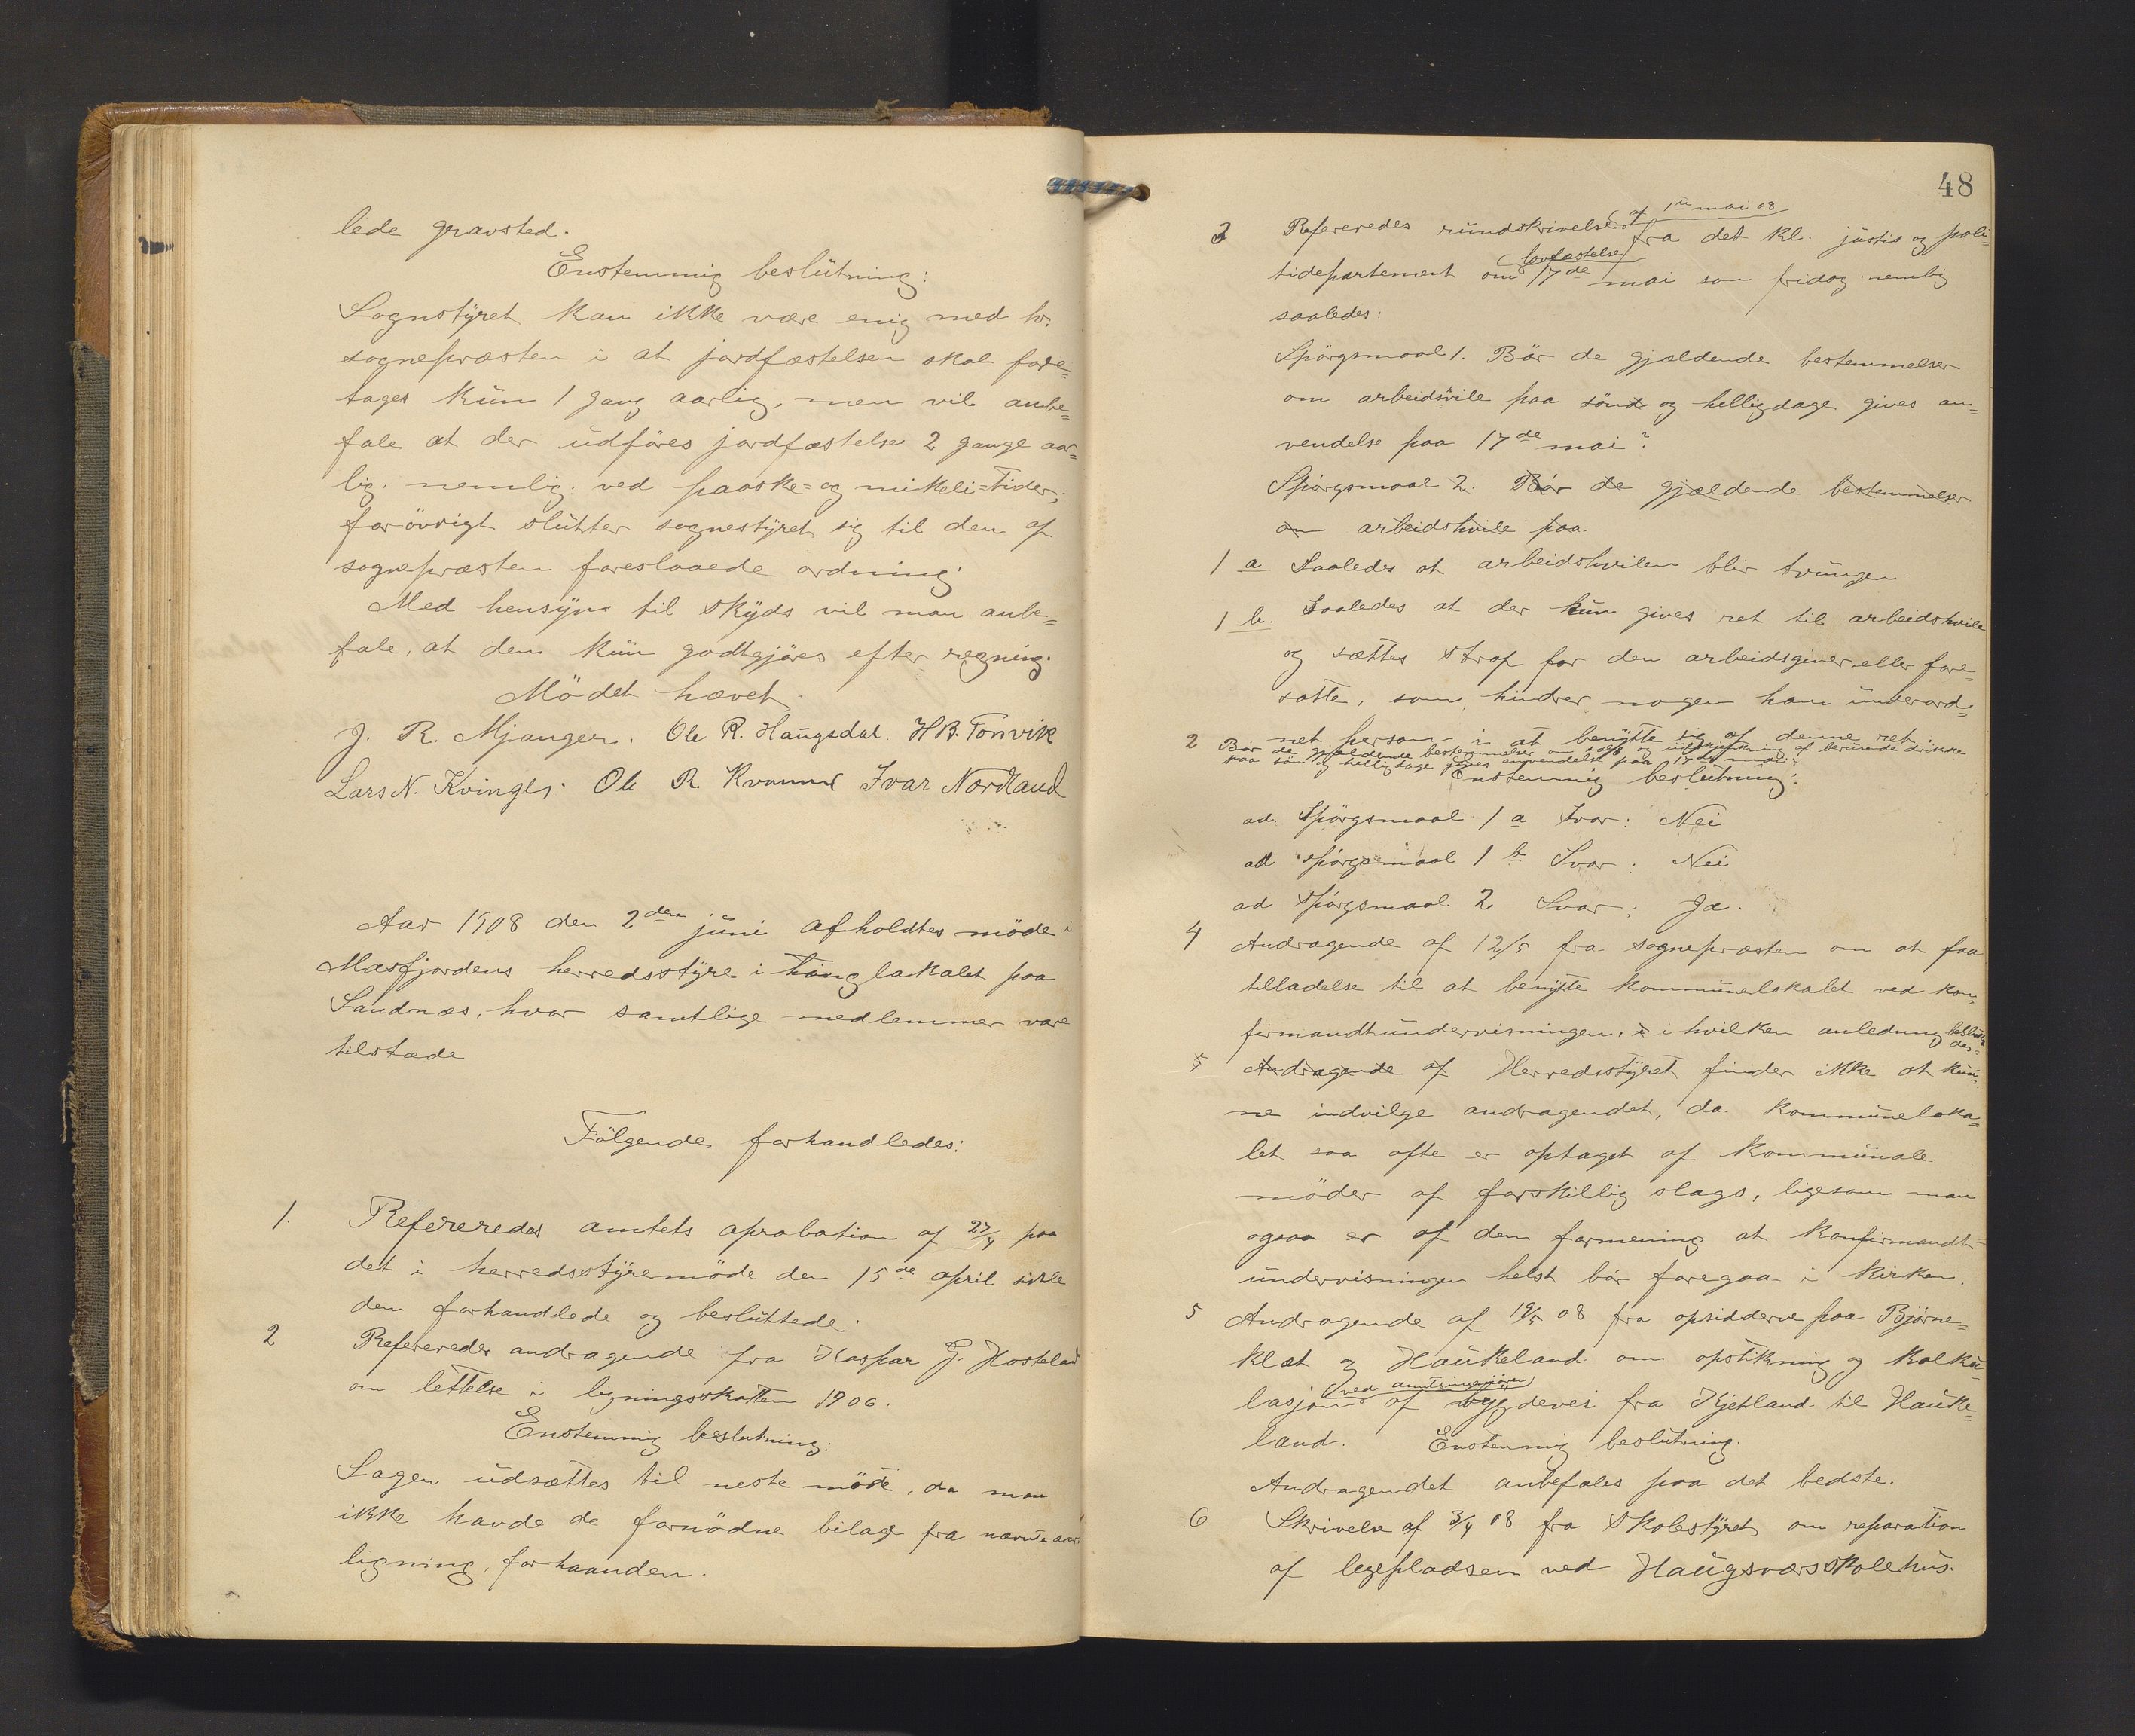 lede gravsted.
Enstemmig beslutning:
Sognstyret kan ikke være enig med hr.
sognepræsten i at jordfæstelsen skal fore=
tages kun 1 gang aarlig, men vil anbe=
fale at der udføres jordfæstelse 2 gange aar=
lig. nemlig: ved paaske= og mikeli=tider;
forøvrigt slutter sognestyret sig til den af
sognepræsten foreslaaede ordning.
Med hensyn til skyds vil man anbe=
fale, at den kun godtgjøres efter regning.
Mødet hævet.
J. R. Mjanger. Ole R. Haugsdal. H B. Tonvik
Lars N. Kvinge. Ole R Kvamme Ivar Nordland
Aar 1908 den 2den juni afholdtes møde i
Masfjordens herredsstyre i thinglokalet paa
Sandnæs, hvor samtlige medlemmer vare
tilstæde
Følgende forhandledes:
1. Refereredes amtets aprobation af 27/4 paa
det i herredsstyremøde den 15de april sidst
den forhandlede og besluttede.
2 Refereredes andragende fra Kaspar J. Hosteland
om lettelse i ligningsskatten 1906.
Enstemmig beslutning:
Sagen udsættes til neste møde, da man
ikke havde de fornødne bilage fra nævnte aars
ligning, forhaanden.
48
3 Refereredes rundskrivelse af 1ste mai 08 fra det kl. justis og poli=
tidepartement om lovfæstelse 17de mai som fridag nemlig
saaledes:
Spørgsmaal 1. Bør de gjældende bestemmelser
om arbeidshvile paa søn og helligdage gives an=
vendelse paa 17de mai?
Spørgsmaal 2. Bør de gjældende bestemmelser
om arbeidshvile paa
1 a Saaledes at arbeidshvilen blir tvungen.
1 b. Saaledes at der kun gives ret til arbeidshvile
og sættes straf for den arbeidsgiver eller fore=
satte, som hindrer nogen ham underord=
net person i at benytte sig af denne ret
2 Bør de gjældende bestemmelser om salg og udskjænkning af berusende drikke
paa søn og helligdage gives anvendelse paa 17de mai?
Enstemmig beslutning:
ad. Spørgsmaal 1 a Svar: Nei
ad spørgsmaal 1 b Svar: Nei
ad spørgsmaal 2 Svar: Ja.
4 Andragende af 12/5 fra sognepræsten om at faa
tilladelse til at benytte kommunelokalet ved kon=
firmandtundervisningen, i hvilken anledning beslut=
tedes:
5 Andragende af Herredsstyret finder ikke at kun=
ne indvilge andragendet, da kommuneloka=
let saa ofte er optaget af kommunale
møder af forskillig slags, ligesom man
ogsaa er af den formening at konfirmandt=
undervisningen helst bør foregaa i kirken.
5 Andragende af 19/5 08 fra opsidderne paa Bjørne=
klæt og Haukeland om opstikning og kalku=
lasjon ved amtsingeniøren af bygdevei fra Kjetland til Hauke=
land. Enstemmig beslutning.
Andragendet anbefales paa det bedste.
6 Skrivelse af 3/4 08 fra Skolestyret om reparation
af legepladsen ved Haugsværsskolehus.